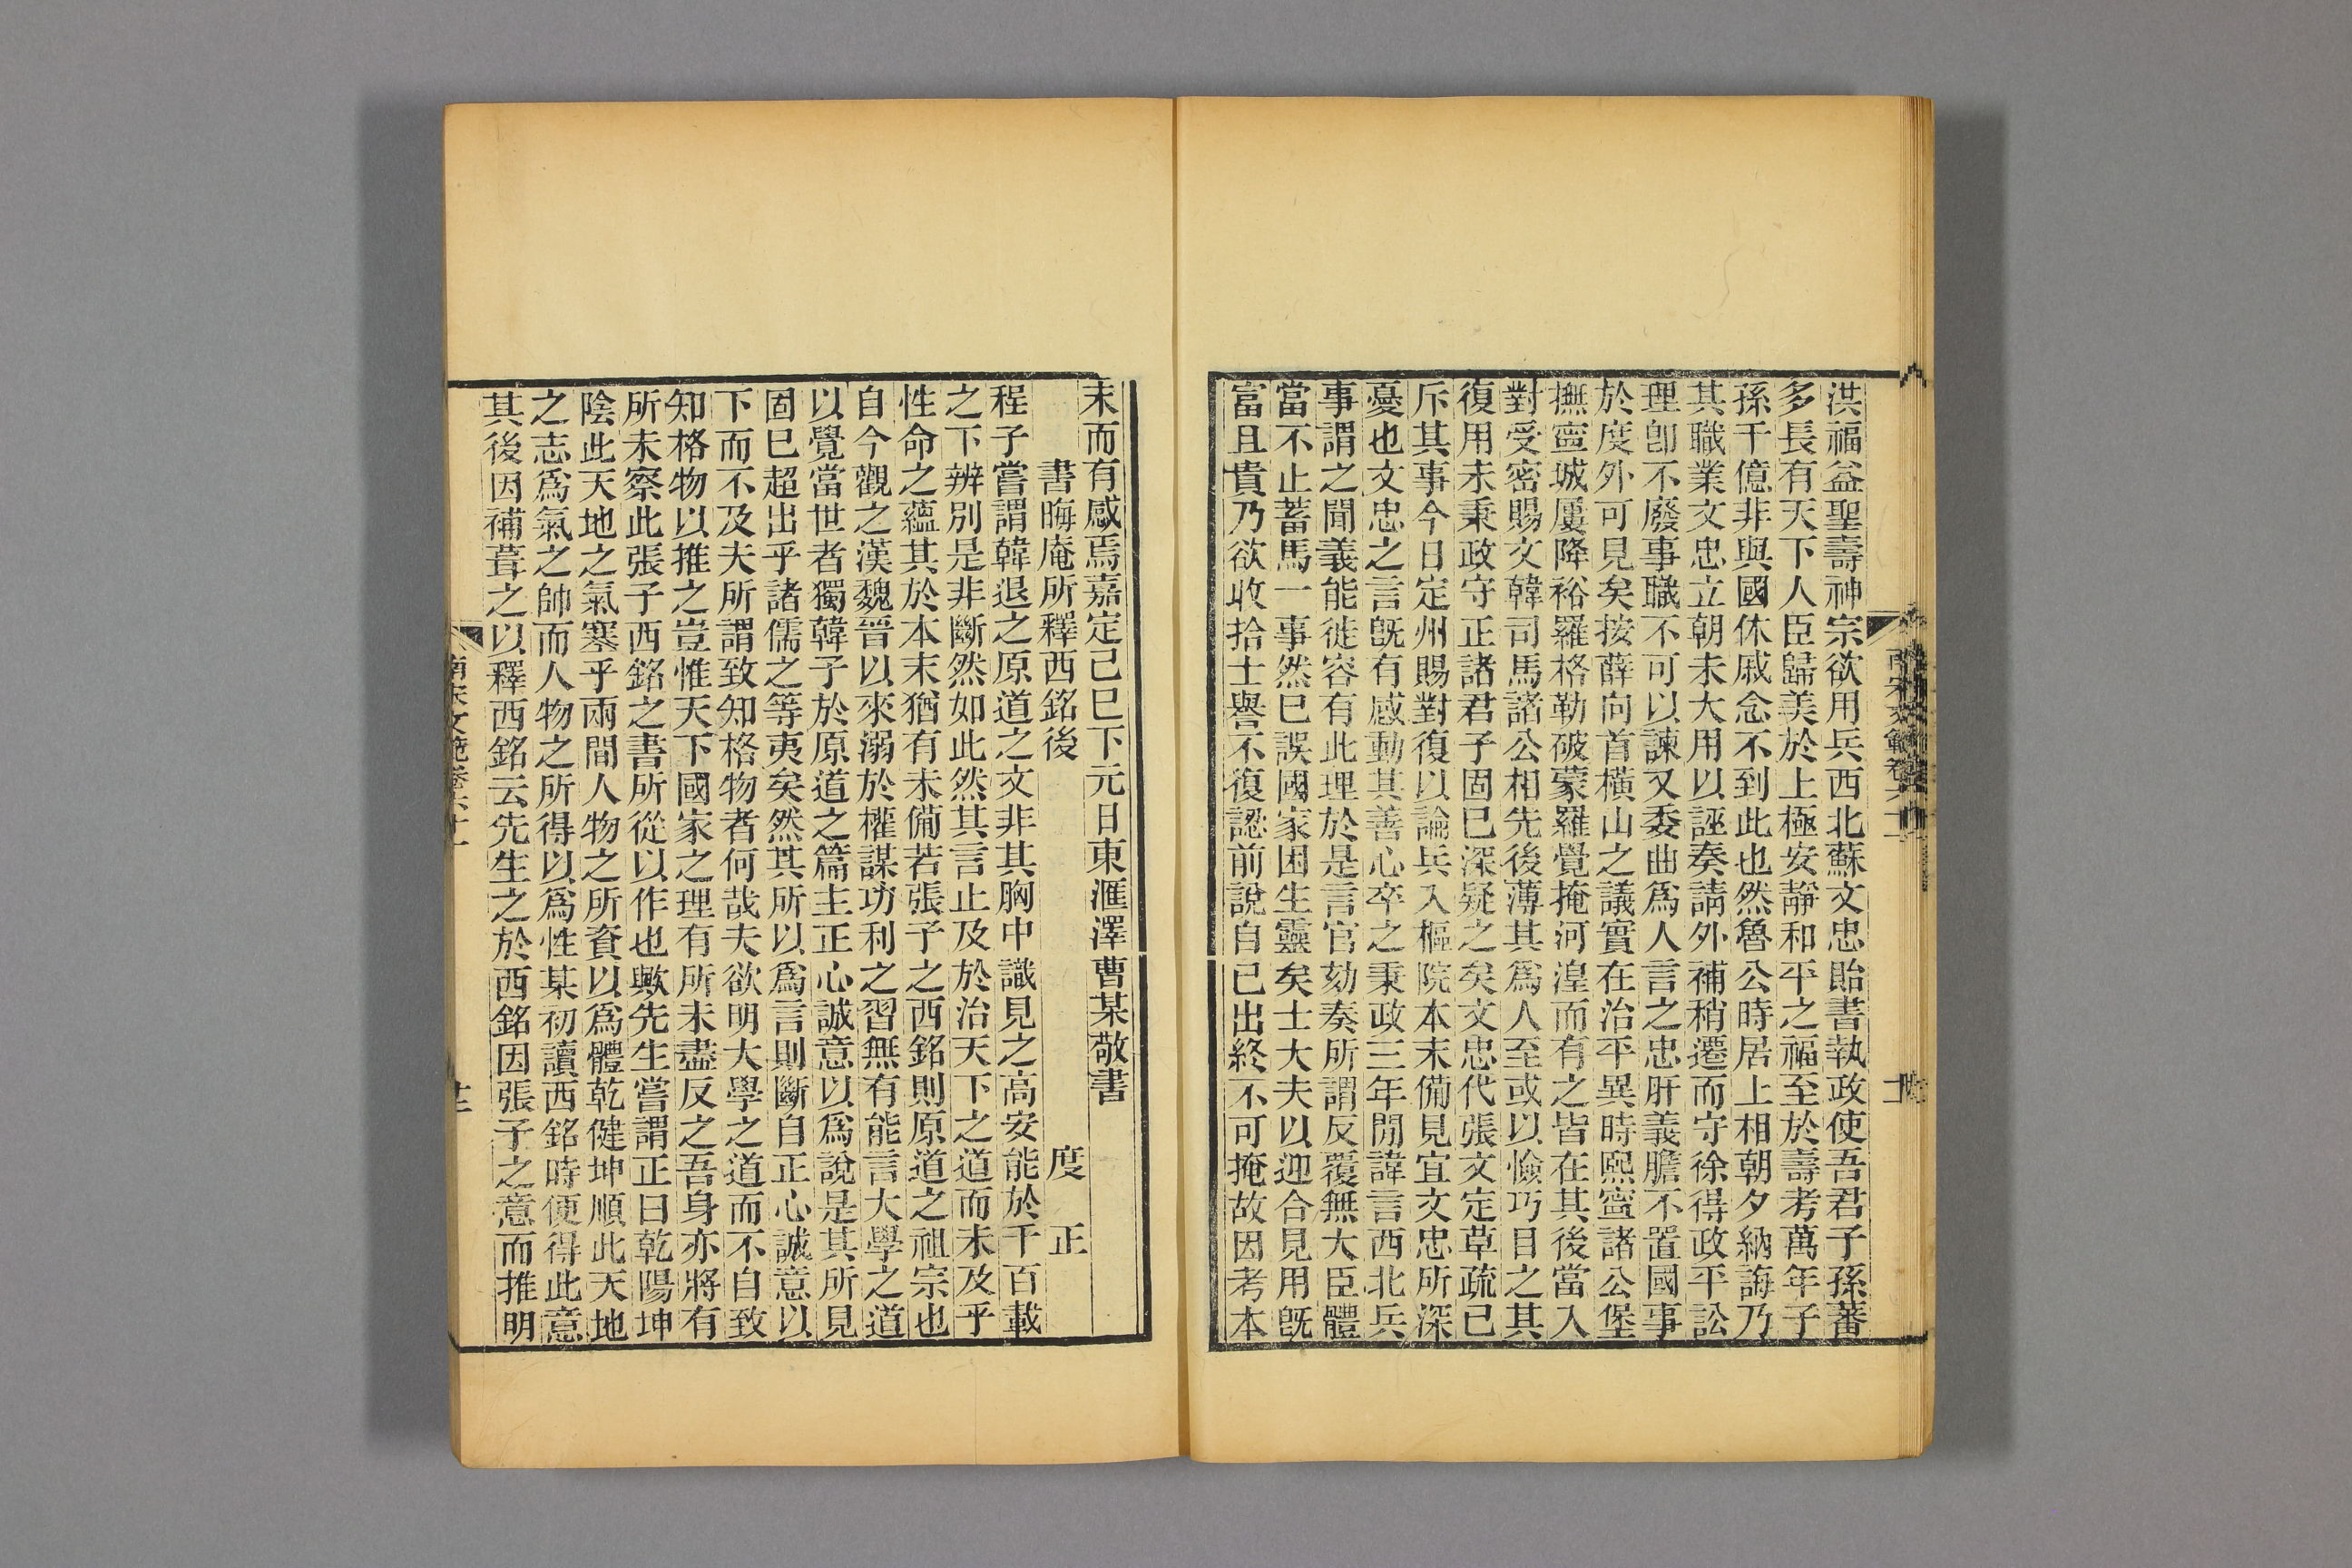 洪福益聖壽神宗欲用兵西北蘇文忠貽書執政使吾君子孫蕃
多長有天下人臣歸美於上極安靜和平之福至於壽考萬年子
孫千億非與國休戚念不到此也然魯公時居上相朝夕納誨乃
其職業文忠立朝未大用以誣奏請外補稍遷而守徐得政平訟
理卽不廢事職不可以諫又委曲爲人言之忠肝義膽不置國事
於度外可見矣按薛向首橫山之議實在治平異時熙寧諸公堡
撫寧城屢降裕羅格勒破蒙羅覺掩河湟而有之皆在其後當入
對受密賜文韓司馬諸公相先後薄其爲人至或以憸巧目之其
復用未秉政守正諸君子固已深疑之矣文忠代張文定草疏已
斥其事今日定州賜對復以論兵入樞院本末備見宜文忠所深
憂也文忠之言旣有感動其善心卒之秉政三年閒諱言西北兵
事謂之聞義能徙容有此理於是言官劾奏所謂反覆無大臣體
當不止蓄馬一事然已誤國家困生靈矣士大夫以迎合見用旣
富且貴乃欲收拾士譽不復認前說自已出終不可掩故因考本
末而有感焉嘉定己巳下元日東滙澤曹某敬書
書晦庵所釋西銘後 度 正
程子嘗謂韓退之原道之文非其胸中識見之高安能於千百載
之下辨別是非斷然如此然其言止及於治天下之道而未及乎
性命之蘊其於本末猶有未備若張子之西銘則原道之祖宗也
自今觀之漢魏晉以來溺於權謀功利之習無有能言大學之道
以覺當世者獨韓子於原道之篇主正心誠意以爲說是其所見
固已超出乎諸儒之等夷矣然其所以爲言則斷自正心誠意以
下而不及夫所謂致知格物者何哉夫欲明大學之道而不自致
知格物以推之豈惟天下國家之理有所未盡反之吾身亦將有
所未察此張子西銘之書所從以作也歟先生嘗謂正曰乾陽坤
陰此天地之氣塞乎兩間人物之所資以爲體乾健坤順此天地
之志爲氣之帥而人物之所得以爲性某初讀西銘時便得此意
其後因補葺之以釋西銘云先生之於西銘因張子之意而推明
南宋文範卷六十